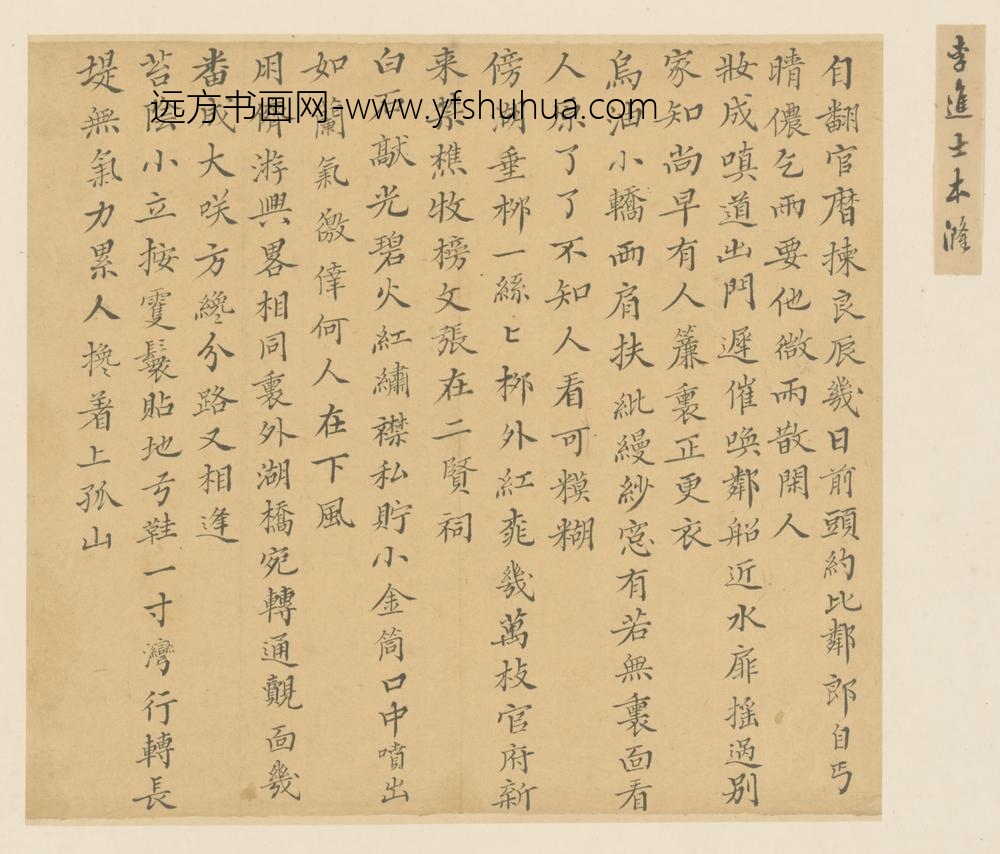 李進士木
自翻官曆揀良辰幾日前頭約比鄰郎自丐
晴儂乞雨要他微雨散閑人
妝成嗔道出門遲催喚鄰船近水扉搖過別
家知尚早有人簾裏正更衣
烏油小轎兩肩扶紕縵紗窓有若無裏面看
人原了了不知人看可糢糊
傍湖垂桺一絲匕桺外紅幾萬枝官府新
来禁樵牧榜文張在二賢祠
白石敲光碧火紅繡襟私貯小金筒口中噴出
如蘭氣徼倖何人在下風
朋儕游興畧相同裏外湖橋宛轉通覿面幾
番成大咲方纔分路又相逢
苔陰小立按雙鬟貼地弓鞋一寸灣行轉長
堤無氣力累人搀着上孤山
远方书画网-www.yfshuhua.com